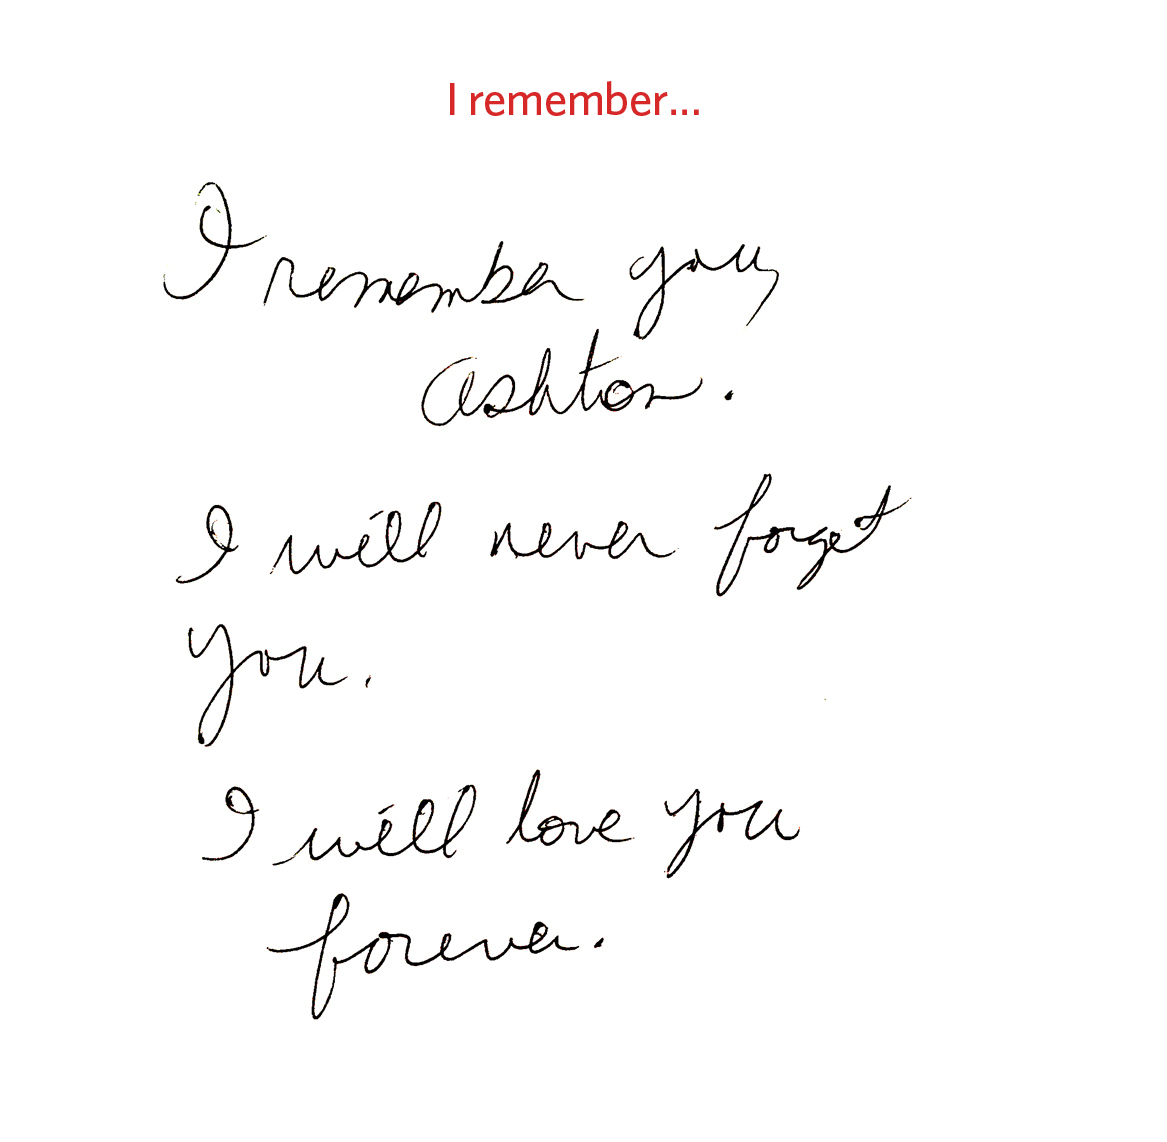 I remember...
I remember you,
Ashton.
I will never forget
you.
I will love you
forever.